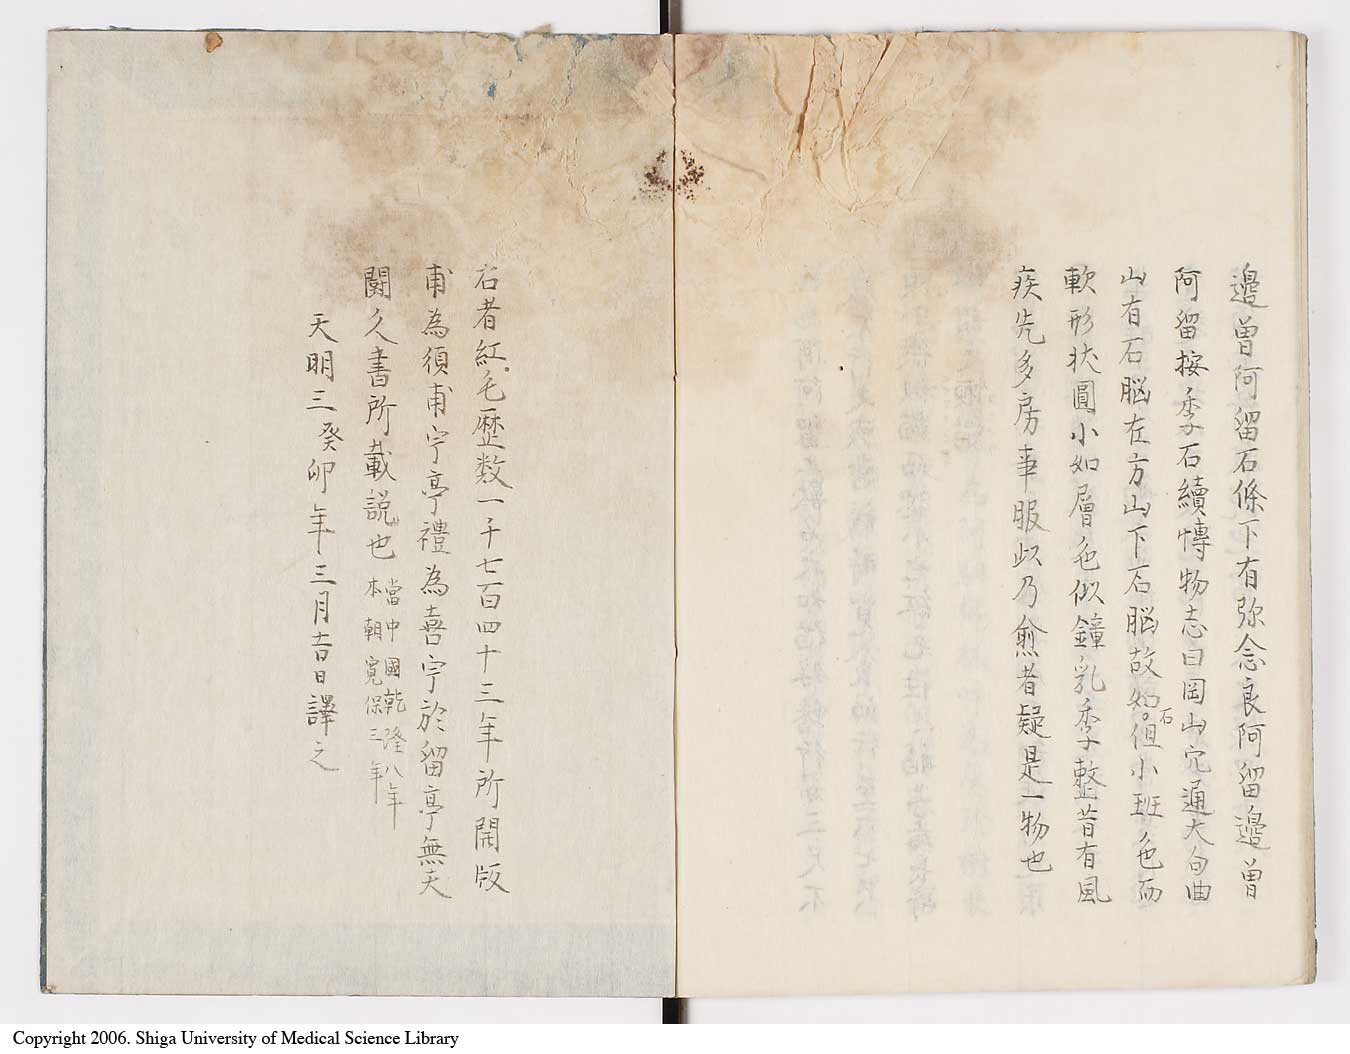 邉曽阿留石條下有弥念良阿留邉曽
阿留按季石續慱物志曰罔山穴通大句曲
山有石脳在方山下石脳故如石但小班色而
軟形状圓小如層色似鐘乳季整昔有風
疾先多房事服此乃愈者疑是一物也
右者紅毛歴数一千七百四十三年所開版
甫為須甫宁亭禮為喜宁於留亭無天
闕久書所載説也
當中國乾隆八年
本朝寛保三年
天明三癸卯年三月吉日譯之
Copyright 2006. Shiga University of Medical Science Library